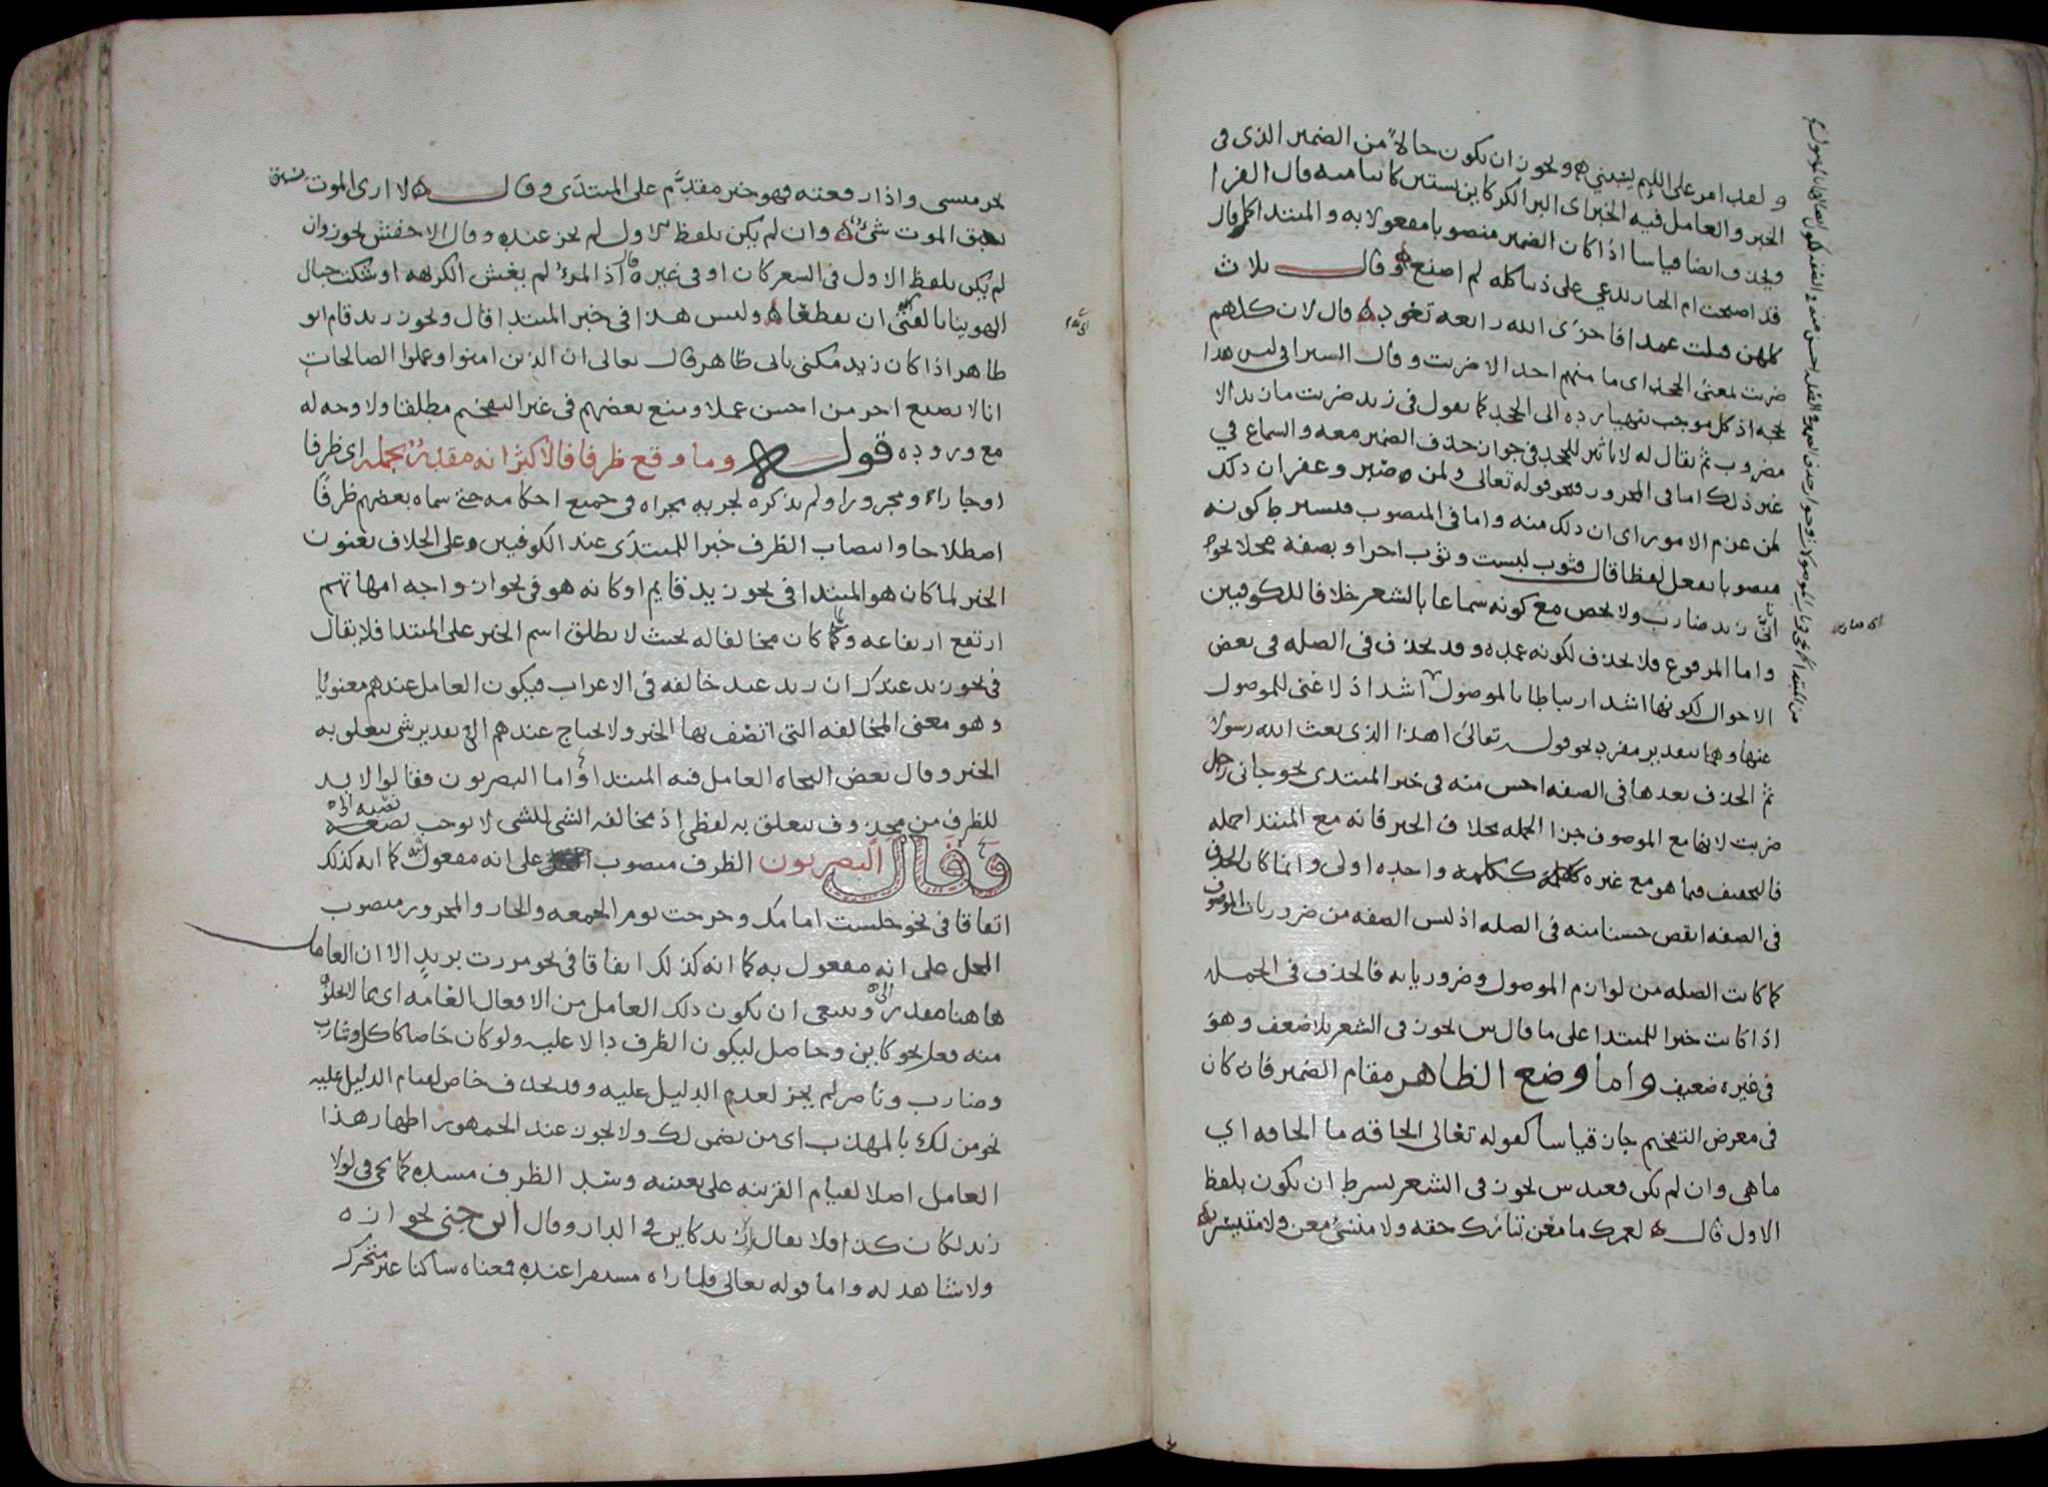 ولقد امر على اللئيم يسبني ويجوز ان يكون حالا من الضمير الذى فى
الخبر والعامل فيه الخبر اى البر الكر كاين بستين كاينا منه قال الفرا
ويحذف ايضا قياسا اذا كان الضمير منصوبا مفعولا به والمبتدا كل قال
قد اصبحت ام الخيار تدعي على ذنبا كله لم اصنع وقال ثلاث
كلهن قتلت عمدا فاخزى الله رابعة تعود قال لان كلهم
ضربت بمعنى الجحد اى ما منهم احد الا ضربت وقال السيرافى ليس هذا
بحجه اذ كل موجب يتهيا رده الى الجحد كما يقول فى زيد ضربت ما زيد الا
مضروب ثم يقال له لا تاثير للجحد فى جواز حذف الضمير معه والسماع في
غير ذلك اما فى المجرور فنحو قوله تعالى ولمن صبر وغفر ان ذلك
لمن عزم الامور اى ان ذلك منه واما فى المنصوب فبشرط كونه
منصوبا بفعل لفظا قال فثوب لبست وثوب اجر او بصفة محلا نحو
انا زيد ضارب ولا يختص مع كونه سماعا بالشعر خلافا للكوفيين
واما المرفوع فلا يحذف لكونه عمدة وقد يحذف فى الصله فى بعض
الاحوال لكونها اشد ارتباطا بالموصول اشد اذ لا غنى للموصول
عنها وهما بتقدير مفرد نحو قوله تعالى اهذا الذى بعث الله رسولا
ثم الحذف بعدها فى الصفه احسن منه فى خبر المبتدى نحو جانى رجل
ضربت لانها مع الموصوف جزا الجمله بخلاف الخبر فانه مع المبتدا جمله
فالتخفيف فيما هو مع غيره ككلمة واحده اولى وانما كان الحذف
فى الصفه انقص حسنا منه فى الصله اذ ليس الصفه من ضروريات الموصوف
كما كانت الصله من لوازم الموصول وضرورياته فالحذف فى الجمله
اذا كانت خبرا للمبتدا على ما قال س يجوز فى الشعر بلا ضعف وهو
فى غيره ضعيف واما وضع الظاهر مقام الضمير فان كان
فى معرض التفخيم جاز قياسا كقوله تعالى الحاقه ما الحاقه اي
ما هى وان لم يكن فعند س يجوز فى الشعر بشرط ان يكون بلفظ
الاول قال لعمرك ما معن بتارك حقه ولا منسئ معن ولا متيسر
بجر منسى واذا رفعته فهو خبر مقدم على المبتدى وقال لا ارى الموت يسبق
الموت شئ وان لم يكن بلفظ الاول لم يجز عنده وقال الاخفش يجوز وان
لم يكن بلفظ الاول فى الشعر كان او فى غيره قال اذا المرء لم يغش الكريهه اوشكت حبال
الهوينا بالفتى ان تقطعا وليس هذا فى خبر المبتدا قال ويجوز زيد قام ابو
طاهر اذا كان زيد مكنى بابى طاهر قال تعالى ان الذين امنوا وعملوا الصالحات
انا لا نضيع اجر من احسن عملا ومنع بعضهم فى غير التفخيم مطلقا ولا وجه له
مع وروده قوله وما وقع ظرفا فالاكثر انه مقدر بجمله اى ظرفا
او جارا ومجرورا ولم يذكره لجريه مجراه فى جميع احكامه حتى سماه بعضهم ظرفا
اصطلاحا وانتصاب الظرف خبرا للمبتدى عند الكوفيين على الخلاف يعنون
الخبر لما كان هو المبتدا فى نحو زيد قايم او كانه هو فى نحو ازواجه امهاتهم
ارتفع ارتفاعه ولما كان مخالفا له بحيث لا يطلق اسم الخبر على المبتدا فلا يقال
فى نحو زيد عندك ان زيد عند خالفه فى الاعراب فيكون العامل عندهم معنويا
وهو معنى المخالفه التى اتصف بها الخبر ولا يحتاج عندهم الى تقدير شى يتعلق به
الخبر وقال بعض النحاه العامل فيه المبتدا واما البصريون فقالوا لا بد
للظرف من محذوف يتعلق به لفظى اذ مخالفه الشى للشى لا يوجب نصبه
وقال البصريون الظرف منصوب على انه مفعول فيه كما انه كذلك
اتفاقا فى نحو جلست امامك وخرجت يوم الجمعه والجار والمجرور منصوب
المحل على انه مفعول به كما انه كذلك اتفاقا فى نحو مررت بزيد الا ان العامل
هاهنا مقدر وينبغى ان يكون ذلك العامل من الافعال العامه اى مما لا يخلو
منه فعل نحو كاين وحاصل ليكون الظرف دالا عليه ولو كان خاصا كاكل وشارب
وضارب وناصر لم يجز لعدم الدليل عليه وقد يحذف خاص لقيام الدليل عليه
نحو من لك بالمهذب اى من يضمن لك ولا يجوز عند الجمهور اظهار هذا
العامل اصلا لقيام القرينه على تعينه وسد الظرف مسده كما يجى فى لولا
زيد لكان كذا فلا يقال زيد كاين فى الدار وقال ابن جنى بجوازه
ولا شاهد له واما قوله تعالى فلما راه مستقرا عنده فمعناه ساكنا غير متحرك